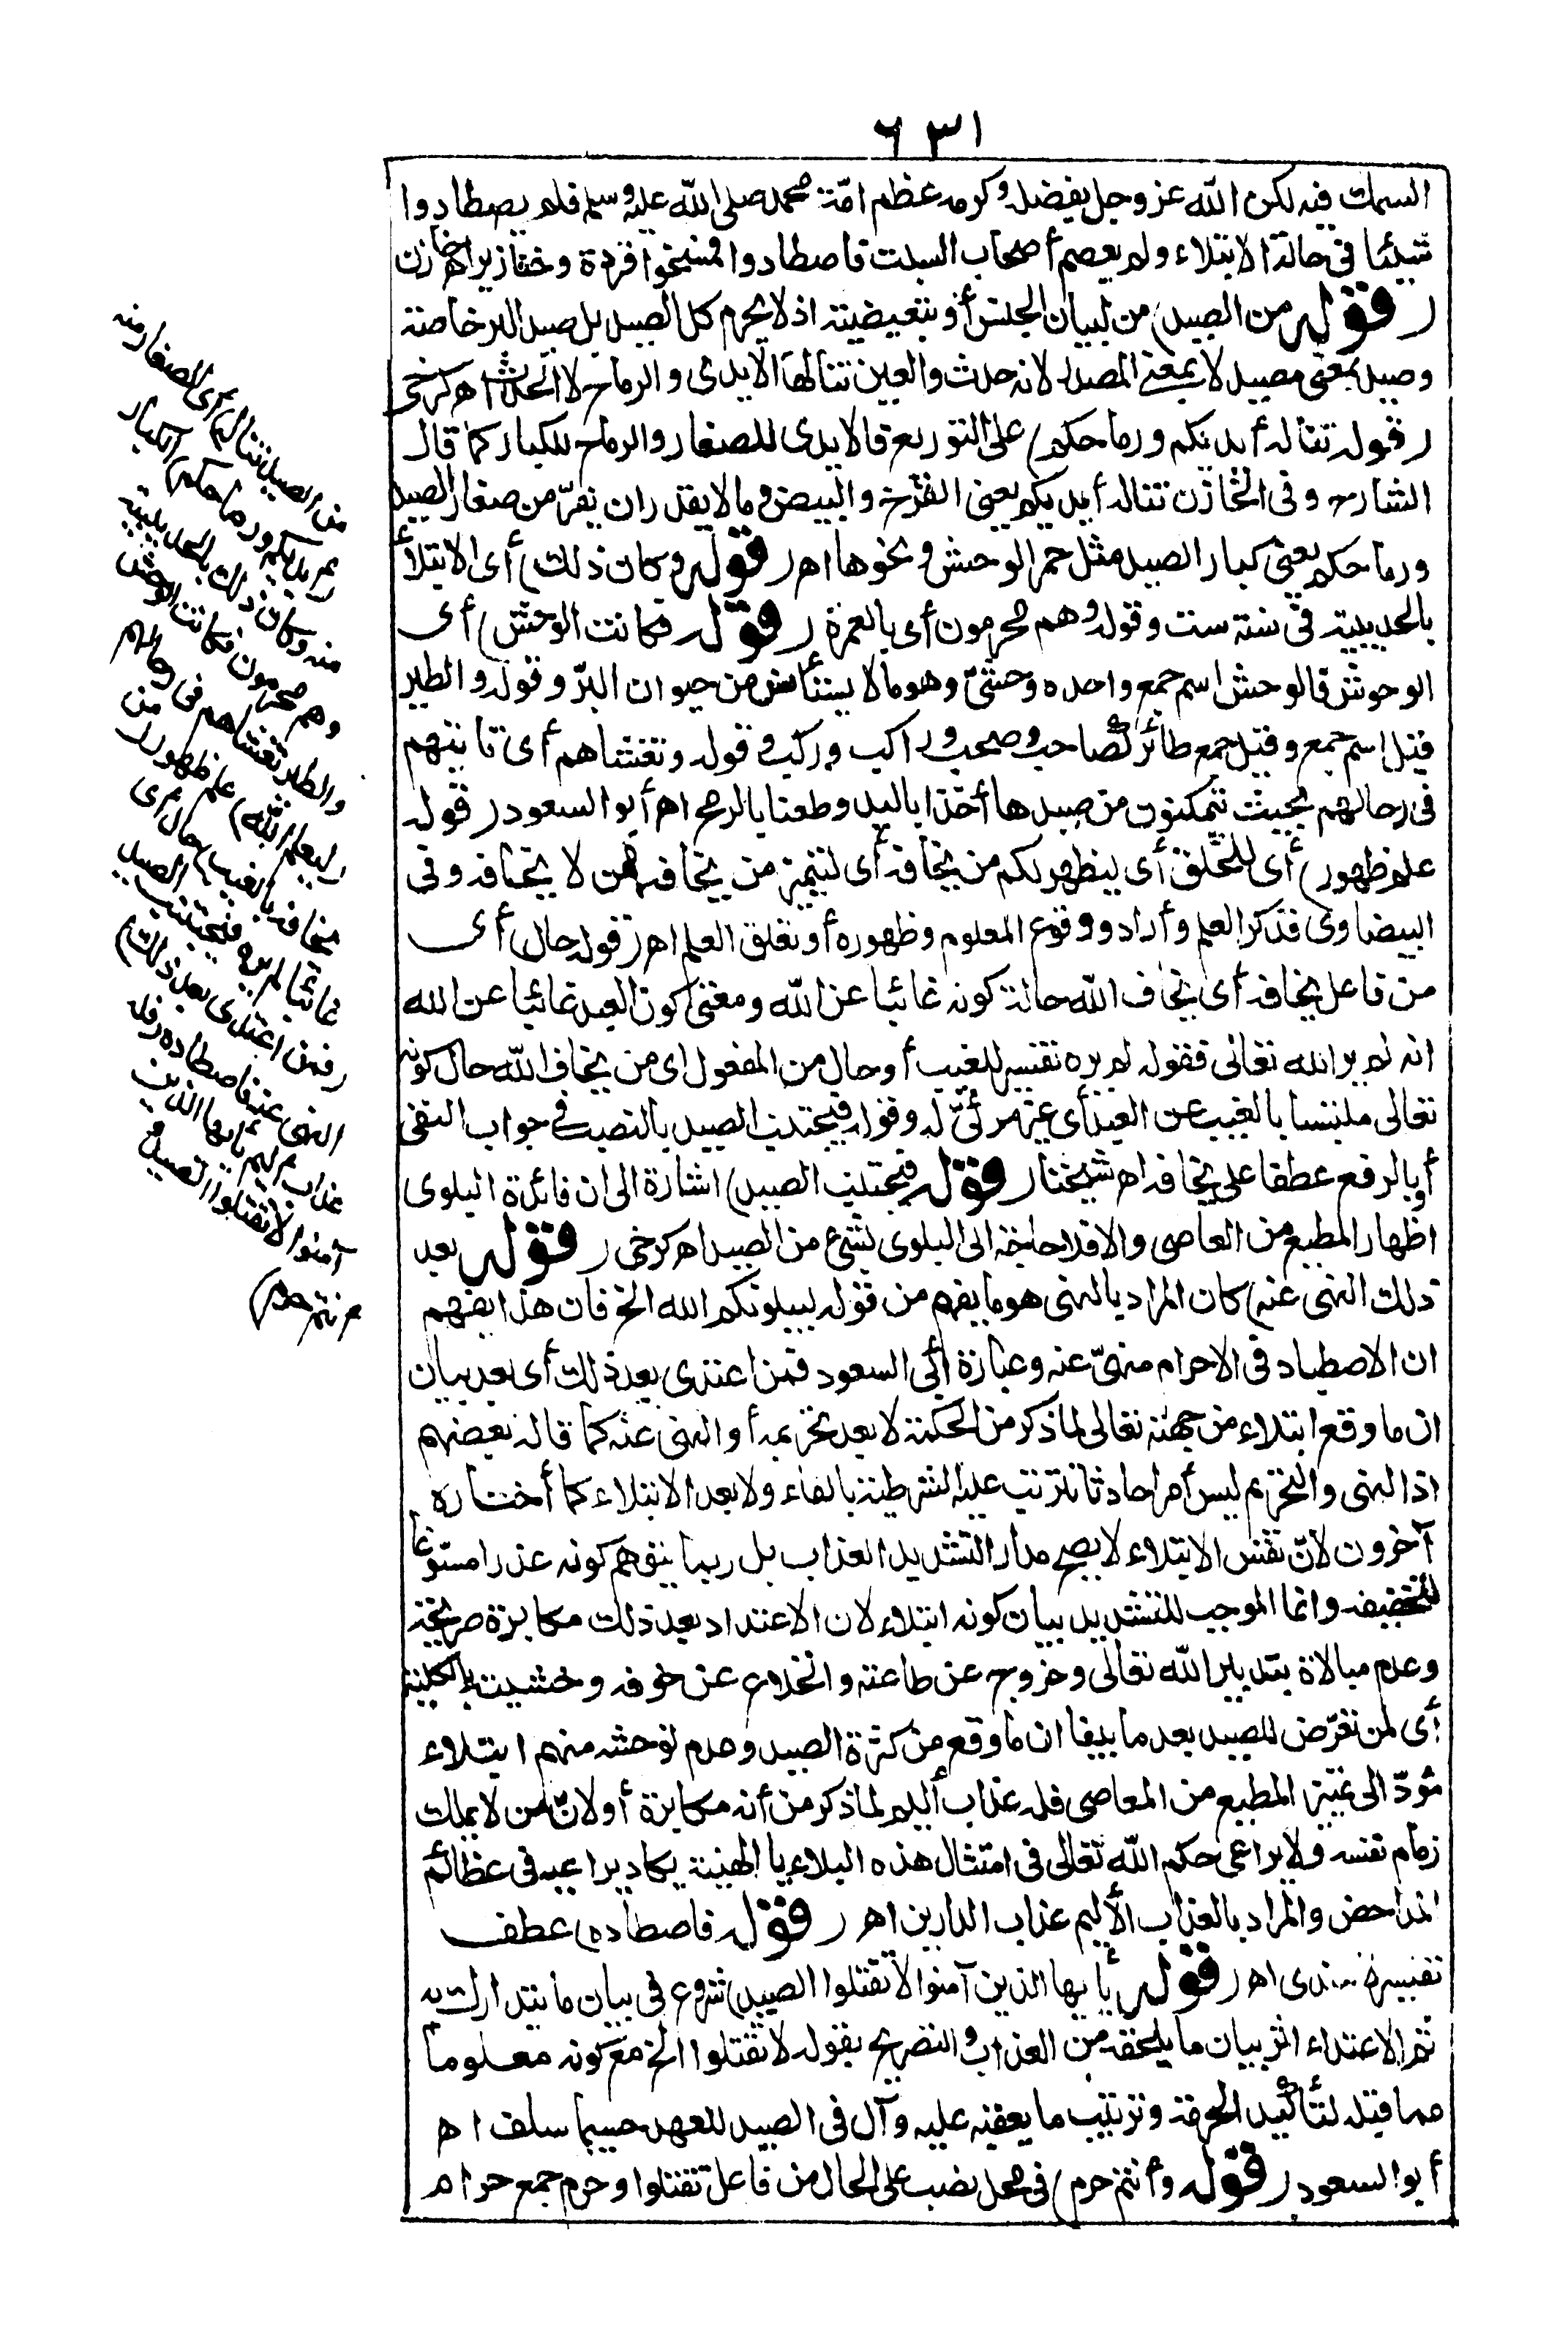 ٦٣١
السمك فيه لكن الله عز وجل بفضله وكرمه عظم امّة محمد صلى الله عليه وسلم فلم يصطادوا
شيئا فى حالة الابتلاء ولم يعصم أصحاب السبت فاصطادوا فمسخوا قردة وخنازير اهـ خازن
(قوله من الصيد) من لبيان الجنس أو تبعيضية اذ لا يحرم كل الصيد بل صيد البر خاصة
وصيد بمعنى مصيد لا بمعنى المصدر لانه حدث والعين تنالها الايدى والرماح لا الحدث اهـ كرخى
(قوله تناله أيديكم ورماحكم) على التوزيع فالايدى للصغار والرماح للكبار كما قال
الشارح وفى الخازن تناله أيديكم يعنى الفرخ والبيض وما لا يقدر ان يفرّ من صغار الصيد
ورماحكم يعنى كبار الصيد مثل حمر الوحش ونحوها اهـ (قوله وكان ذلك) أى الابتلاء
بالحديبية فى سنة ست وقوله وهم محرمون أى بالعمرة (قوله فكانت الوحش) أى
الوحوش فالوحش اسم جمع واحده وحشىّ وهو ما لا يستأنس من حيوان البرّ وقوله والطير
قيل اسم جمع وقيل جمع طائر كصاحب وصحب وراكب وركب وقوله وتغشاهم أى تأتيهم
فى رحالهم بحيث يتمكنون من صيدها أخذا باليد وطعنا بالرمح اهـ أبو السعود (قوله
علم ظهور) أى للخلق أى ليظهر لكم من يخافه أى لتميز من يخافه ممن لا يخافه وفى
البيضاوى فذكر العلم وأراد وقوع المعلوم وظهوره أو تعلق العلم اهـ (قوله حال) أى
من فاعل يخافه أى يخاف الله حالة كونه غائبا عن الله ومعنى كون العبد غائبا عن الله
انه لم ير الله تعالى فقوله لم يره تفسير للغيب أو حال من المفعول اى من يخاف الله حال كونه
تعالى ملتبسا بالغيب عن العبد أى غير مرئىّ له وقوله فيجتنب الصيد بالنصب فى جواب النفى
أو بالرفع عطفا على يخافه اهـ شيخنا (قوله فيجتنب الصيد) اشارة الى ان فائدة البلوى
اظهار المطيع من العاصى والا فلا حاجة الى البلوى بشىء من الصيد اهـ كرخى (قوله بعد
ذلك النهى عنه) كان المراد بالنهى هو ما يفهم من قوله ليبلونكم الله الخ فان هذا يفهم
ان الاصطياد فى الاحرام منهىّ عنه وعبارة أبى السعود فمن اعتدى بعد ذلك أى بعد بيان
ان ما وقع ابتلاء من جهته تعالى لما ذكر من الحكمة لا بعد تحريمه أو النهى عنه كما قاله بعضهم
اذ النهى والتحريم ليس أمرا حادثا ترتب عليه الشرطية بالفاء ولا بعد الابتلاء كما أختاره
آخرون لانّ نفس الابتلاء لا يصح مدار التشديد العذاب بل ربما يتوهم كونه عذرا مسوّغا
لتخفيفه وانما الموجب للتشديد بيان كونه ابتلاء لان الاعتداد بعد ذلك مكابرة صريحة
وعدم مبالاة بتدبير الله تعالى وخروج عن طاعته وانخلاع عن خوفه وخشيته بالكلية
أى لمن تعرّض للصيد بعد ما بينا ان ما وقع من كثرة الصيد وعدم توحشه منهم ابتلاء
مؤدّ الى تمييز المطيع من المعاصى فله عذاب أليم لما ذكر من أنه مكابرة أو لانّ من لا يملك
زمام نفسه ولا يراعى حكم الله تعالى فى امتثال هذه البلاء يا الهينة يكاد يراعيه فى عظائم
المداحض والمراد بالعذاب الأليم عذاب الدارين اهـ (قوله فاصطاده) عطف
اهـ (قوله يأيها الذين آمنوا لا تقتلوا الصيد) شروع فى بيان ما يتدارك به
ثم الاعتداء اثر بيان ما يلحقه من العذاب والتصريح بقوله لا تقتلوا الخ مع كونه معلوما
مما قبله لتأكيد الحرمة وترتيب ما يعقبه عليه وآل فى الصيد للعهد حسبما سلف اهـ
أبو السعود (قوله وأنتم حرم) فى محل نصب على الحال من فاعل تقتلوا وحرم جمع حرام
من الصيد تناله) أى الصغار منه
(أيديكم ورماحكم) الكبار
منه وكان ذلك بالحديبية
وهم محرمون فكانت الوحش
والطير تغشاهم فى رحالهم
(ليعلم الله) علم ظهور (من
يخافه بالغيب) حال أى
غائبا لم يره فيجتنب الصيد
(فمن اعتدى بعد ذلك)
النهى عنه فاصطاده (فله
عذاب أليم يأيها الذين
آمنوا لا تقتلوا الصيد و
أنتم حرم)